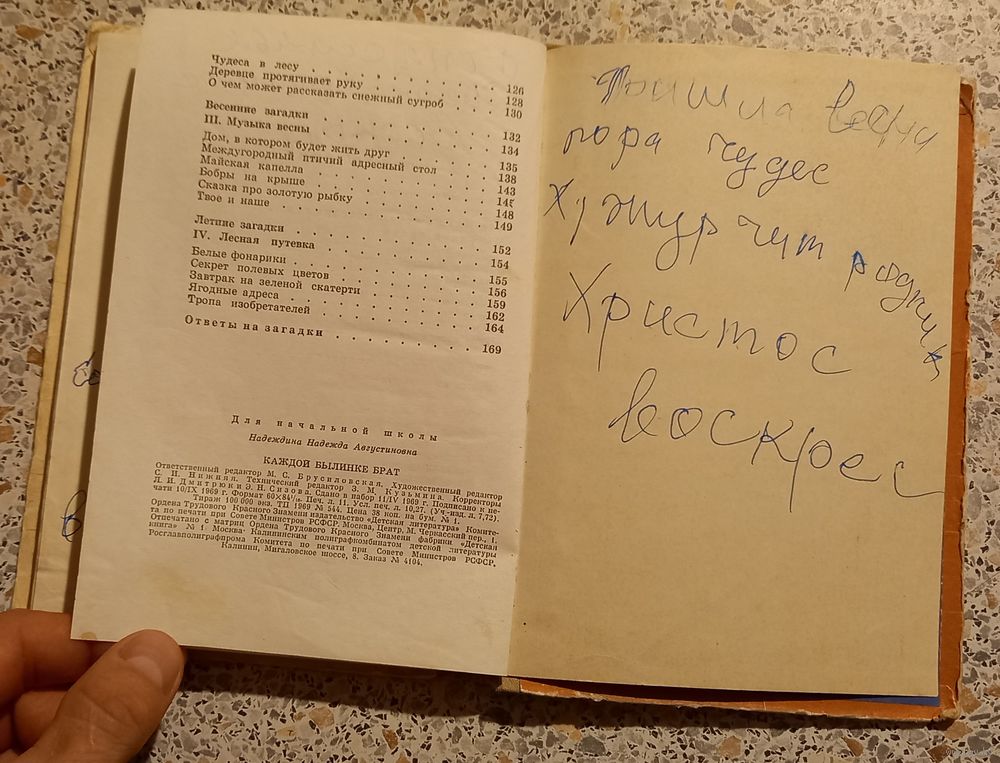 Чудеса в лесу . . . . . . . . . . 126
Деревце протягивает руку . . . . . . 128
О чем может рассказать снежный сугроб . . . 130
Весенние загадки . . . . . . . . . 132
III. Музыка весны . . . . . . . . . 134
Дом, в котором будет жить друг . . . . . 135
Междугородный птичий адресный стол . . . 138
Майская капелла . . . . . . . . . 143
Бобры на крыше . . . . . . . . . 145
Сказка про золотую рыбку . . . . . . 148
Твое и наше . . . . . . . . . . 149
Летние загадки . . . . . . . . . . 152
IV. Лесная путевка . . . . . . . . . 154
Белые фонарики . . . . . . . . . 155
Секрет полевых цветов . . . . . . . 156
Завтрак на зеленой скатерти . . . . . . 159
Ягодные адреса . . . . . . . . . 162
Тропа изобретателей . . . . . . . . 164
Ответы на загадки . . . . . . . . . 169
Для начальной школы
Надеждина Надежда Августиновна
КАЖДОЙ БЫЛИНКЕ БРАТ
Ответственный редактор М. С. Брусиловская. Художественный редактор
С. И. Нижняя. Технический редактор З. М. Кузьмина. Корректоры
Л. И. Дмитрюк и Э. Н. Сизова. Сдано в набор 11/IV 1969 г. Подписано к пе-
чати 10/IX 1969 г. Формат 60×84 1/16. Печ. л. 11. Усл. печ. л. 10,27. (Уч-изд. л. 7,72).
Тираж 100 000 экз. ТП 1969 № 544. Цена 38 коп. на бум. № 1.
Ордена Трудового Красного Знамени издательство «Детская литература» Комите-
та по печати при Совете Министров РСФСР. Москва, Центр, М. Черкасский пер., 1.
Отпечатано с матриц Ордена Трудового Красного Знамени фабрики «Детская
книга» № 1 Москва. Калининским полиграфкомбинатом детской литературы
Росглавполиграфпрома Комитета по печати при Совете Министров РСФСР.
Калинин, Мигаловское шоссе, 8. Заказ № 4104.
Пришла весни
пора чудес
журчит родник
Христос
воскрес